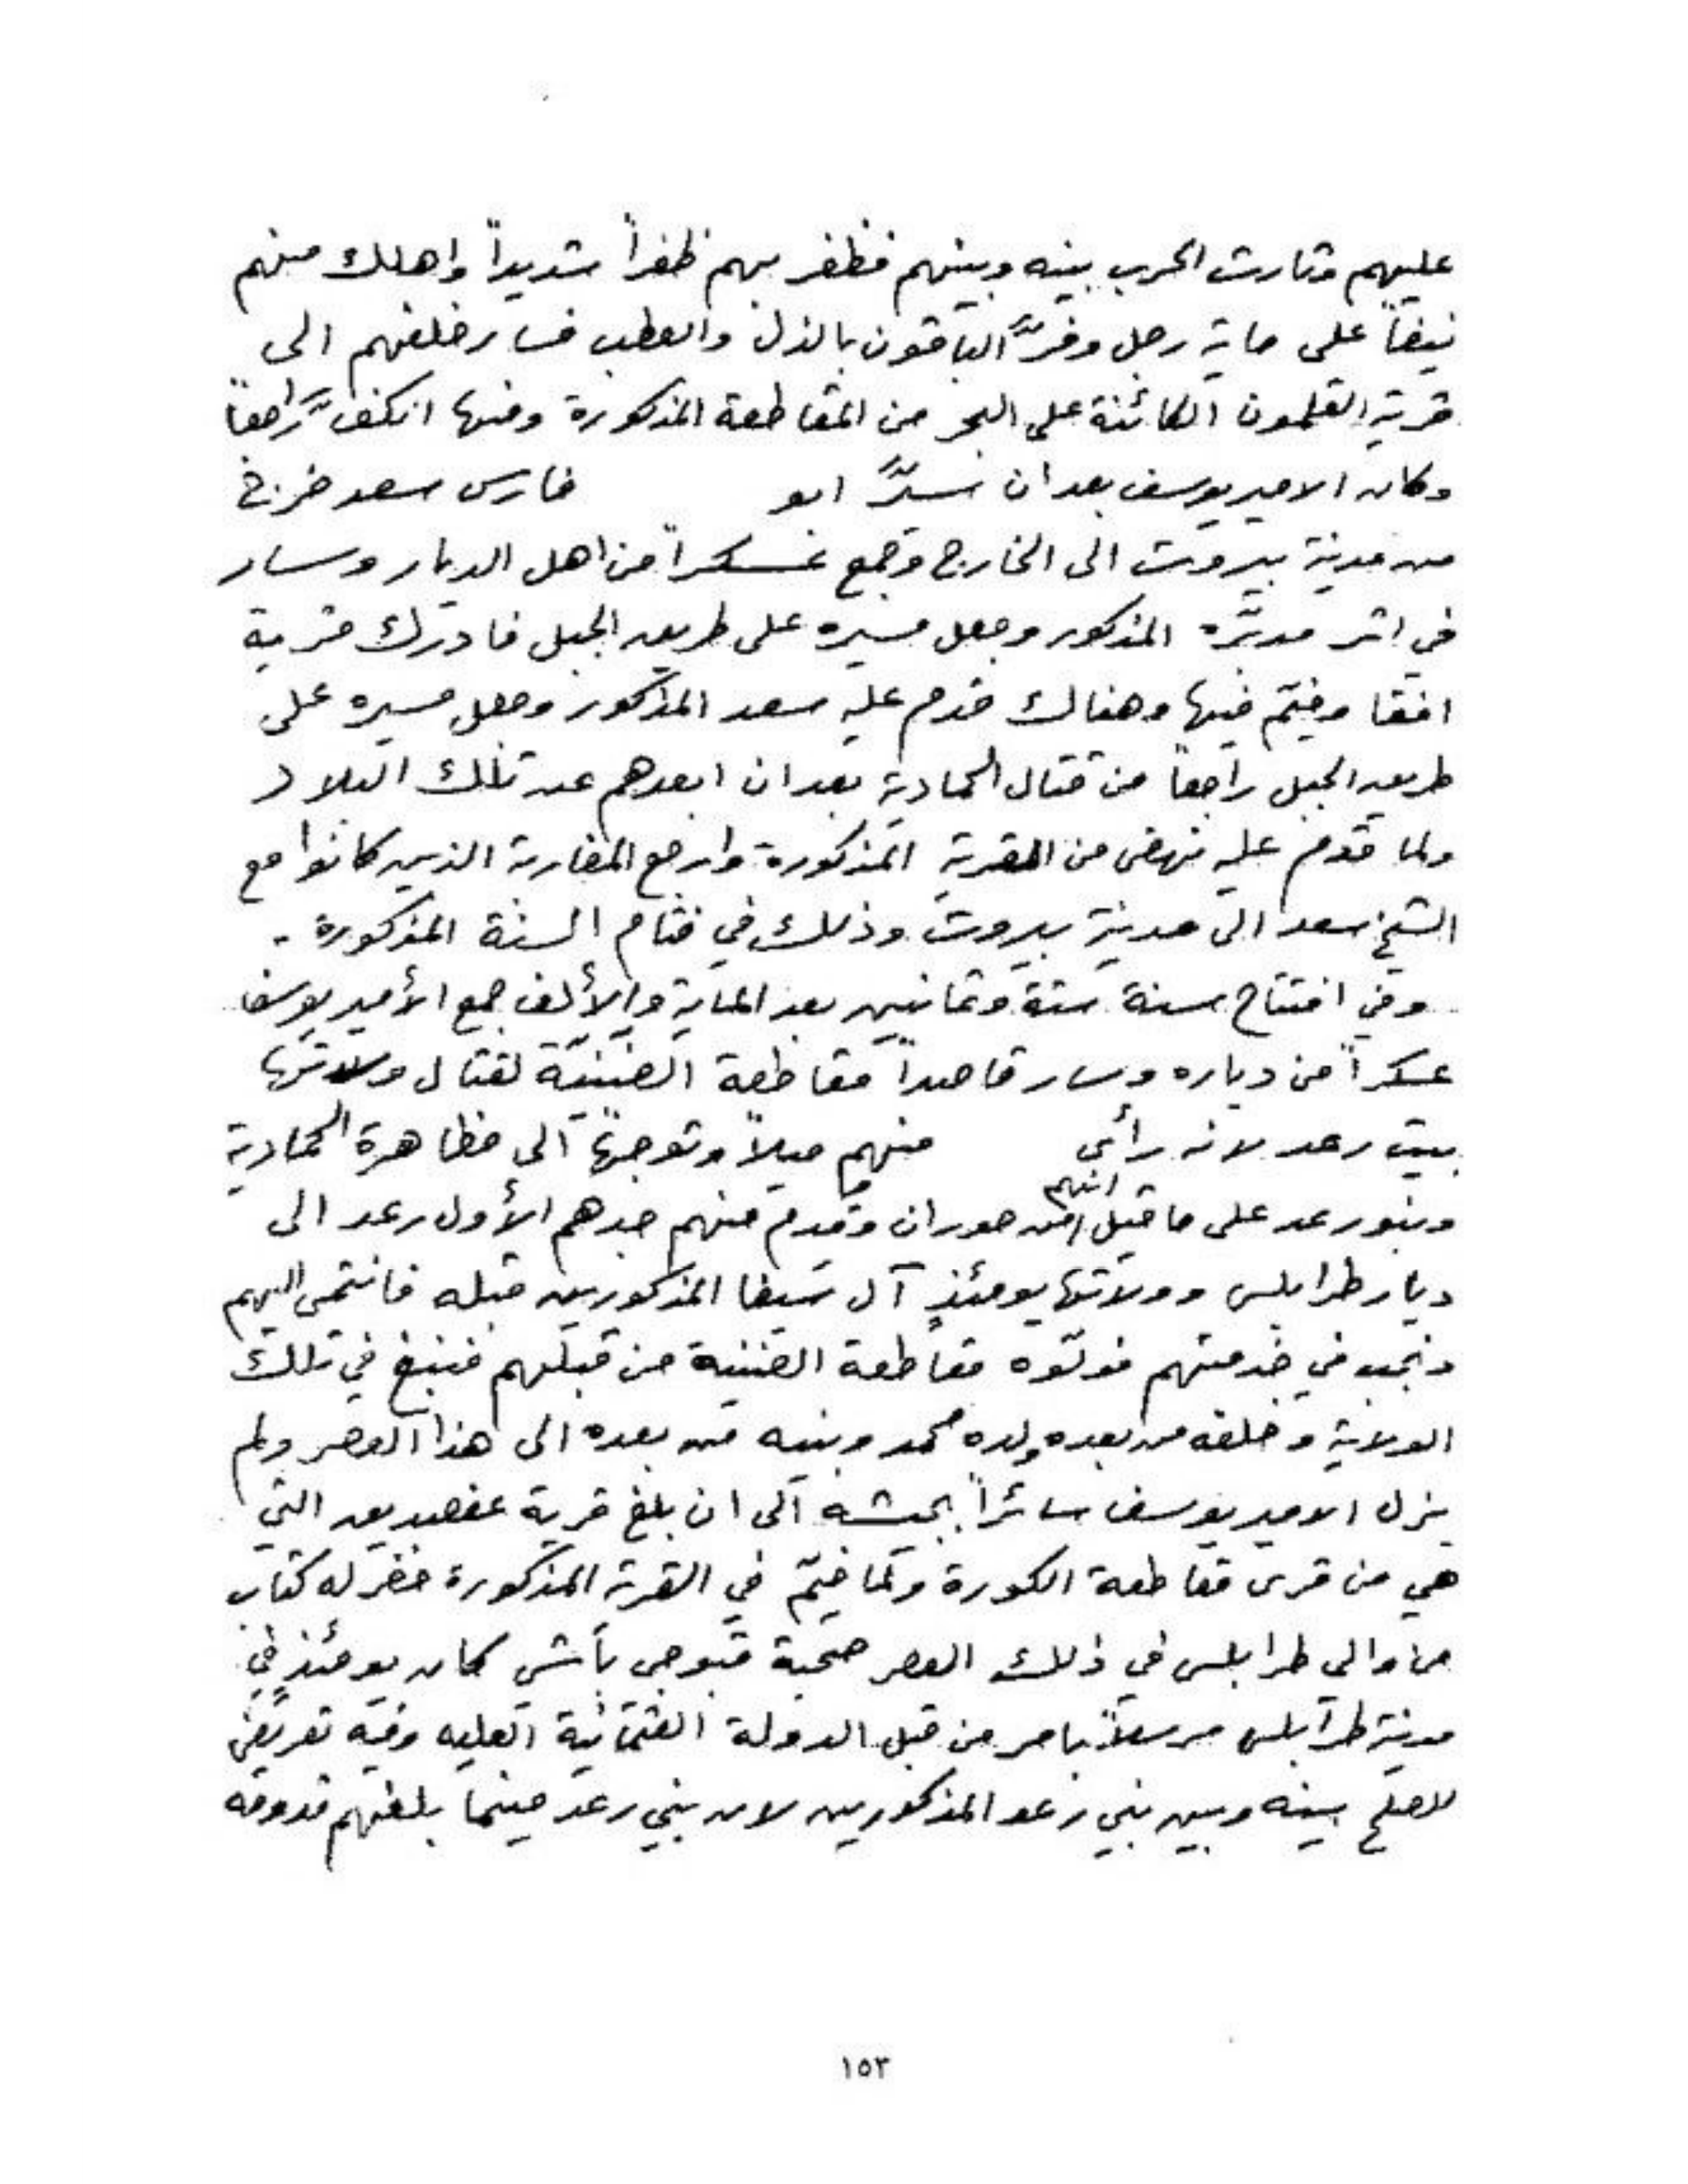 عليهم وثارت الحرب بينه وبينهم فظفر بهم ظفراً شديداً واهلك منهم
نيفاً على ماية رجل وفرَّ الباقون بالذل والعطب فسار خلفهم الى
قرية القلمون الكائنة على البحر من المقاطعة المذكورة ومنها انكفَّ راجعاً
وكان الامير يوسف بعد ان سيَّر ابو فارس سعد خرج
من مدينة بيروت الى الخارج وجمع عسكراً من اهل الديار وسار
في اثر مدبّره المذكور وجعل مسيره على طريق الجبل فادرك قرية
افقا وخيّم فيها وهناك قدم عليه سعد المذكور وجعل مسيره على
طريق الجبل راجعاً من قتال الحمادية بعد ان ابعدهم عن تلك البلاد
ولما قدم عليه نهض من القرية المذكورة وارجع المغاربة الذين كانوا مع
الشيخ سعد الى مدينة بيروت وذلك في ختام السنة المذكورة -
وفي افتتاح سنة ستة وثمانين بعد الماية والألف جمع الأمير يوسف
عسكراً من دياره وسار قاصداً مقاطعة الضنيّة لقتال ولاتها
بيت رعد لانه رأى منهم ميلاً وتوجهاً الى مظاهرة الحمادية
وبنو رعد على ما قيل انهم من حوران وقدم منهم جدهم الأول رعد الى
ديار طرابلس وولاتها يومئذٍ آل سيفا المذكورين قبله فانتمى اليهم
ونجب في خدمتهم فولّوه مقاطعة الضنية من قبلهم فنبغ في تلك
الولاية وخلفه من بعده ولده محمد وبنيه من بعده الى هذا العصر ولم
يزل الامير يوسف سائراً بجيشه الى ان بلغ قرية عفصديق التي
هي من قرى مقاطعة الكورة ولما خيّم في القرية المذكورة حضر له كتاب
من والي طرابلس في ذلك العصر صحبة قبوجي باشي كان يومئذٍ في
مدينة طرابلس مرسلاً بامر من قبل الدولة العثمانية العليه وفيه تعريض
للصلح بينه وبين بني رعد المذكورين لان بني رعد حينما بلغهم قدومه
١٥٣